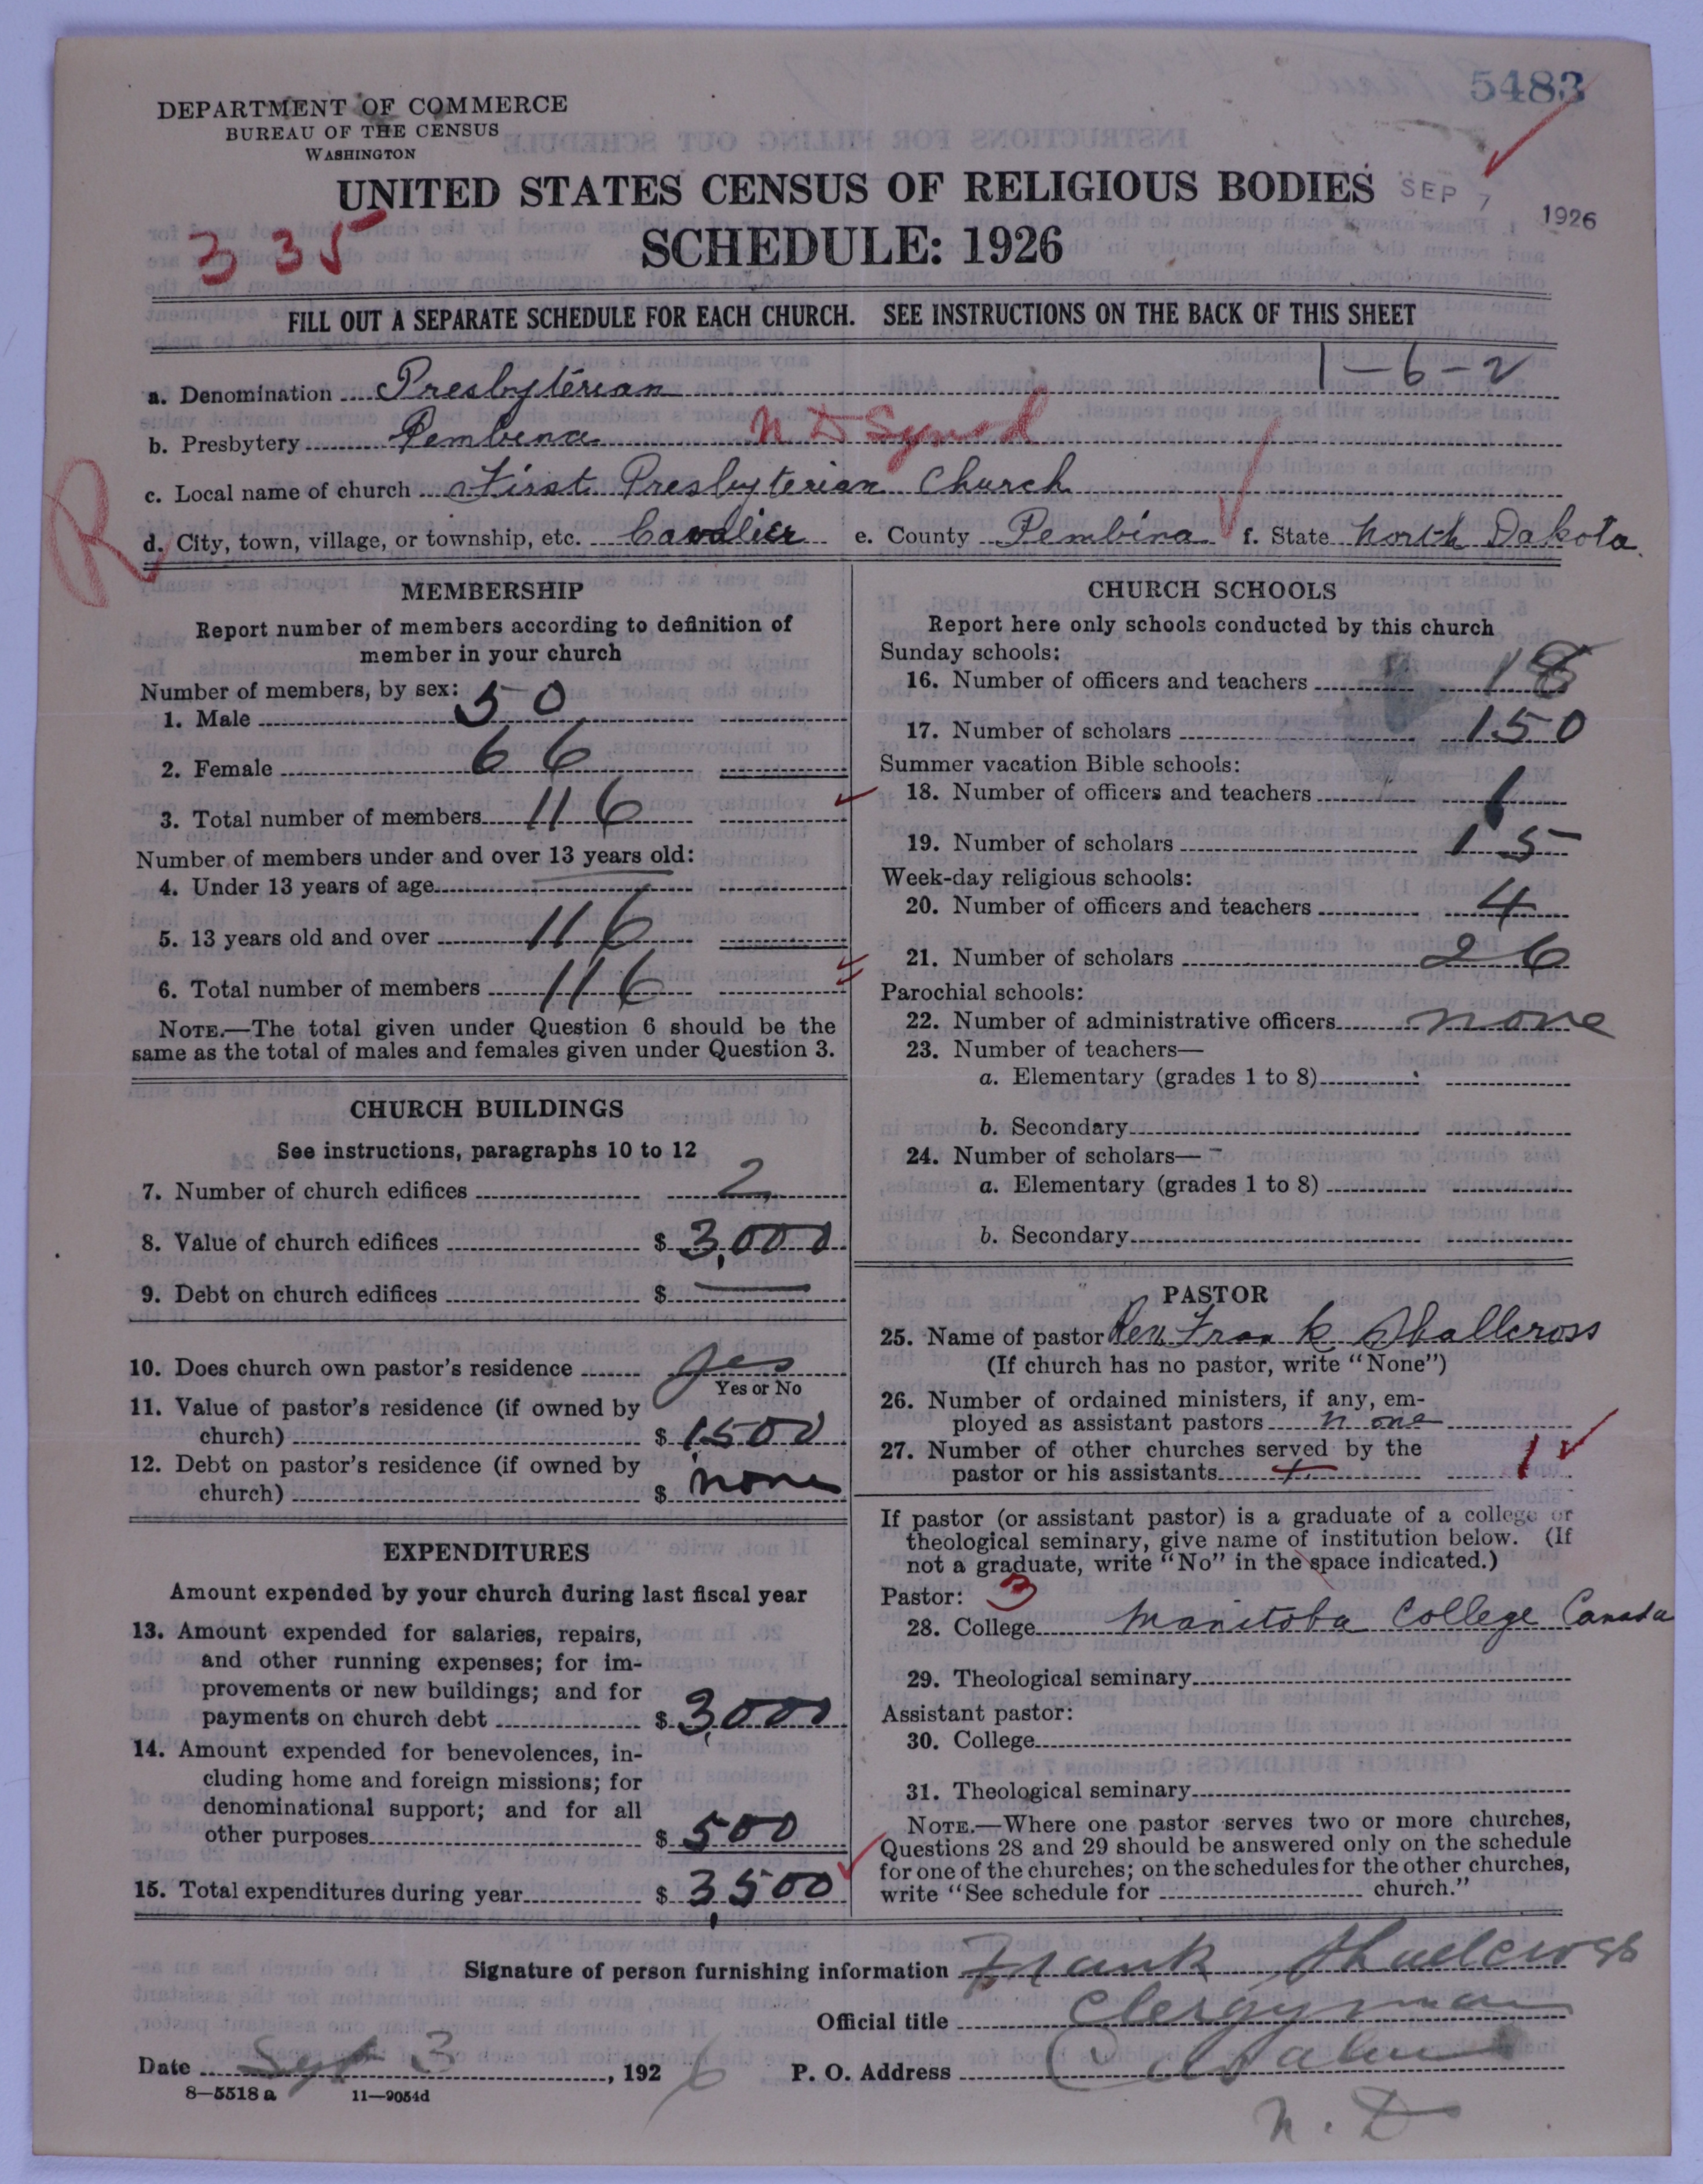 5483
DEPARTMENT OF COMMERCE
BUREAU OF THE CENSUS
WASHINGTON
UNITED STATES CENSUS OF RELIGIOUS BODIES
SEP 7 1926
335
SCHEDULE: 1926
FILL OUT A SEPARATE SCHEDULE FOR EACH CHURCH. SEE INSTRUCTIONS ON THE BACK OF THIS SHEET
1-6-2
a. Denomination Presbyterian
b. Presbytery Pembina N D Synod
c. Local name of church First Presbyterian Church
R
d. City, town, village, or township, etc. Cavalier e. County Pembina f. State North Dakota
MEMBERSHIP
Report number of members according to definition of
member in your church
Number of members, by sex:
1. Male 50
2. Female 66
3. Total number of members 116
Number of members under and over 13 years old:
4. Under 13 years of age
5. 13 years old and over 116
6. Total number of members 116
NOTE.—The total given under Question 6 should be the
same as the total of males and females given under Question 3.
CHURCH BUILDINGS
See instructions, paragraphs 10 to 12
7. Number of church edifices 2
8. Value of church edifices $ 3,000
9. Debt on church edifices $ —
10. Does church own pastor's residence yes
Yes or No
11. Value of pastor's residence (if owned by
church) $ 1500
12. Debt on pastor's residence (if owned by
church) $ none
EXPENDITURES
Amount expended by your church during last fiscal year
13. Amount expended for salaries, repairs,
and other running expenses; for im-
provements or new buildings; and for
payments on church debt $ 3,000
14. Amount expended for benevolences, in-
cluding home and foreign missions; for
denominational support; and for all
other purposes $ 500
15. Total expenditures during year $ 3,500
CHURCH SCHOOLS
Report here only schools conducted by this church
Sunday schools:
16. Number of officers and teachers 18
17. Number of scholars 150
Summer vacation Bible schools:
18. Number of officers and teachers 1
19. Number of scholars 15
Week-day religious schools:
20. Number of officers and teachers 4
21. Number of scholars 26
Parochial schools:
22. Number of administrative officers none
23. Number of teachers—
a. Elementary (grades 1 to 8)
b. Secondary
24. Number of scholars—
a. Elementary (grades 1 to 8)
b. Secondary
PASTOR
25. Name of pastor Rev Frank Shallcross
(If church has no pastor, write "None")
26. Number of ordained ministers, if any, em-
ployed as assistant pastors none
27. Number of other churches served by the
pastor or his assistants 1
If pastor (or assistant pastor) is a graduate of a college or
theological seminary, give name of institution below. (If
not a graduate, write "No" in the space indicated.)
Pastor: 3
28. College Manitoba College Canada
29. Theological seminary
Assistant pastor:
30. College
31. Theological seminary
NOTE.—Where one pastor serves two or more churches,
Questions 28 and 29 should be answered only on the schedule
for one of the churches; on the schedules for the other churches,
write "See schedule for church."
Signature of person furnishing information Frank Shallcross
Official title Clergyman
Date Sept 3, 1926 P. O. Address Cavalier
N. D
8—5518 a 11—9054d